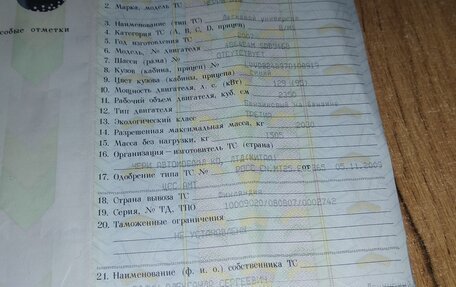 особые отметки
2. Марка, модель ТС
3. Наименование (тип ТС) Легковой универсал
4. Категория ТС (А, В, С, D, прицеп) В/М1
5. Год изготовления ТС 2007
6. Модель, № двигателя
7. Шасси (рама) № ОТСУТСТВУЕТ
8. Кузов (кабина, прицеп) №
9. Цвет кузова (кабины, прицепа)
10. Мощность двигателя, л. с. (кВт) 129 (95)
11. Рабочий объем двигателя, куб. см
12. Тип двигателя Бензиновый на бензине
13. Экологический класс ТРЕТИЙ
14. Разрешенная максимальная масса, кг 2030
15. Масса без нагрузки, кг 1505
16. Организация—изготовитель ТС (страна)
ЧЕРИ АВТОМОБАЙЛ КО., ЛТД(КИТАЙ)
17. Одобрение типа ТС № от 05.11.2009
18. Страна вывоза ТС ФИНЛЯНДИЯ
19. Серия, № ТД, ТПО 10009020/080807/0002742
20. Таможенные ограничения
НЕ УСТАНОВЛЕНЫ
21. Наименование (ф. и. о.) собственника ТС
АЛЕКСАНДР СЕРГЕЕВИЧ